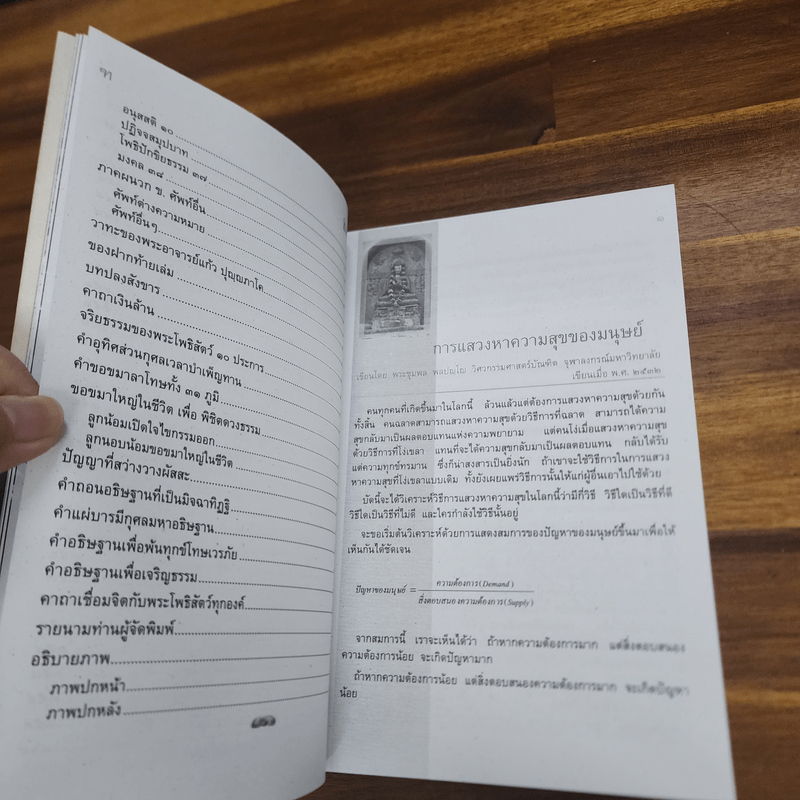 อนุสสติ ๑๐
ปฏิจจสมุปบาท
โพธิปักขิยธรรม ๓๗
มงคล ๓๘
ภาคผนวก ข. ศัพท์อื่น
ศัพท์ต่างความหมาย
ศัพท์อื่นๆ
วาทะของพระอาจารย์แก้ว ปุญฺญภาโค
ของฝากท้ายเล่ม
บทปลงสังขาร
คาถาเงินล้าน
จริยธรรมของพระโพธิสัตว์ ๑๐ ประการ
คำอุทิศส่วนกุศลเวลาบำเพ็ญทาน
คำขอขมาลาโทษทั้ง ๓๑ ภูมิ
ขอขมาใหญ่ในชีวิต เพื่อ พิชิตดวงธรรม
ลูกน้อมเปิดใจไขกรรมออก
ลูกนอบน้อมขอขมาใหญ่ในชีวิต
ปัญญาที่สว่างวางผัสสะ
คำถอนอธิษฐานที่เป็นมิจฉาทิฏฐิ
คำแผ่บารมีกุศลมหาอธิษฐาน
คำอธิษฐานเพื่อพ้นทุกข์โทษเวรภัย
คำอธิษฐานเพื่อเจริญธรรม
คาถาเชื่อมจิตกับพระโพธิสัตว์ทุกองค์
รายนามท่านผู้จัดพิมพ์
อธิบายภาพ
ภาพปกหน้า
ภาพปกหลัง
๑
การแสวงหาความสุขของมนุษย์
เขียนโดย พระชุมพล พลปญฺโญ วิศวกรรมศาสตร์บัณฑิต จุฬาลงกรณ์มหาวิทยาลัย
เขียนเมื่อ พ.ศ. ๒๕๓๒
คนทุกคนที่เกิดขึ้นมาในโลกนี้ ล้วนแล้วแต่ต้องการแสวงหาความสุขด้วยกัน
ทั้งสิ้น คนฉลาดสามารถแสวงหาความสุขด้วยวิธีการที่ฉลาด สามารถได้ความ
สุขกลับมาเป็นผลตอบแทนแห่งความพยายาม แต่คนโง่เมื่อแสวงหาความสุข
ด้วยวิธีการที่โง่เขลา แทนที่จะได้ความสุขกลับมาเป็นผลตอบแทน กลับได้รับ
แต่ความทุกข์ทรมาน ซึ่งก็น่าสงสารเป็นยิ่งนัก ถ้าเขาจะใช้วิธีการในการแสวง
หาความสุขที่โง่เขลาแบบเดิม ทั้งยังเผยแพร่วิธีการนั้นให้แก่ผู้อื่นเอาไปใช้ด้วย
บัดนี้จะได้วิเคราะห์วิธีการแสวงหาความสุขในโลกนี้ว่ามีกี่วิธี วิธีใดเป็นวิธีที่ดี
วิธีใดเป็นวิธีที่ไม่ดี และใครกำลังใช้วิธีนั้นอยู่
จะขอเริ่มต้นวิเคราะห์ด้วยการแสดงสมการของปัญหาของมนุษย์ขึ้นมาเพื่อให้
เห็นกันได้ชัดเจน
ปัญหาของมนุษย์ = ความต้องการ(Demand)
สิ่งตอบสนองความต้องการ(Supply)
จากสมการนี้ เราจะเห็นได้ว่า ถ้าหากความต้องการมาก แต่สิ่งตอบสนอง
ความต้องการน้อย จะเกิดปัญหามาก
ถ้าหากความต้องการน้อย แต่สิ่งตอบสนองความต้องการมาก จะเกิดปัญหา
น้อย